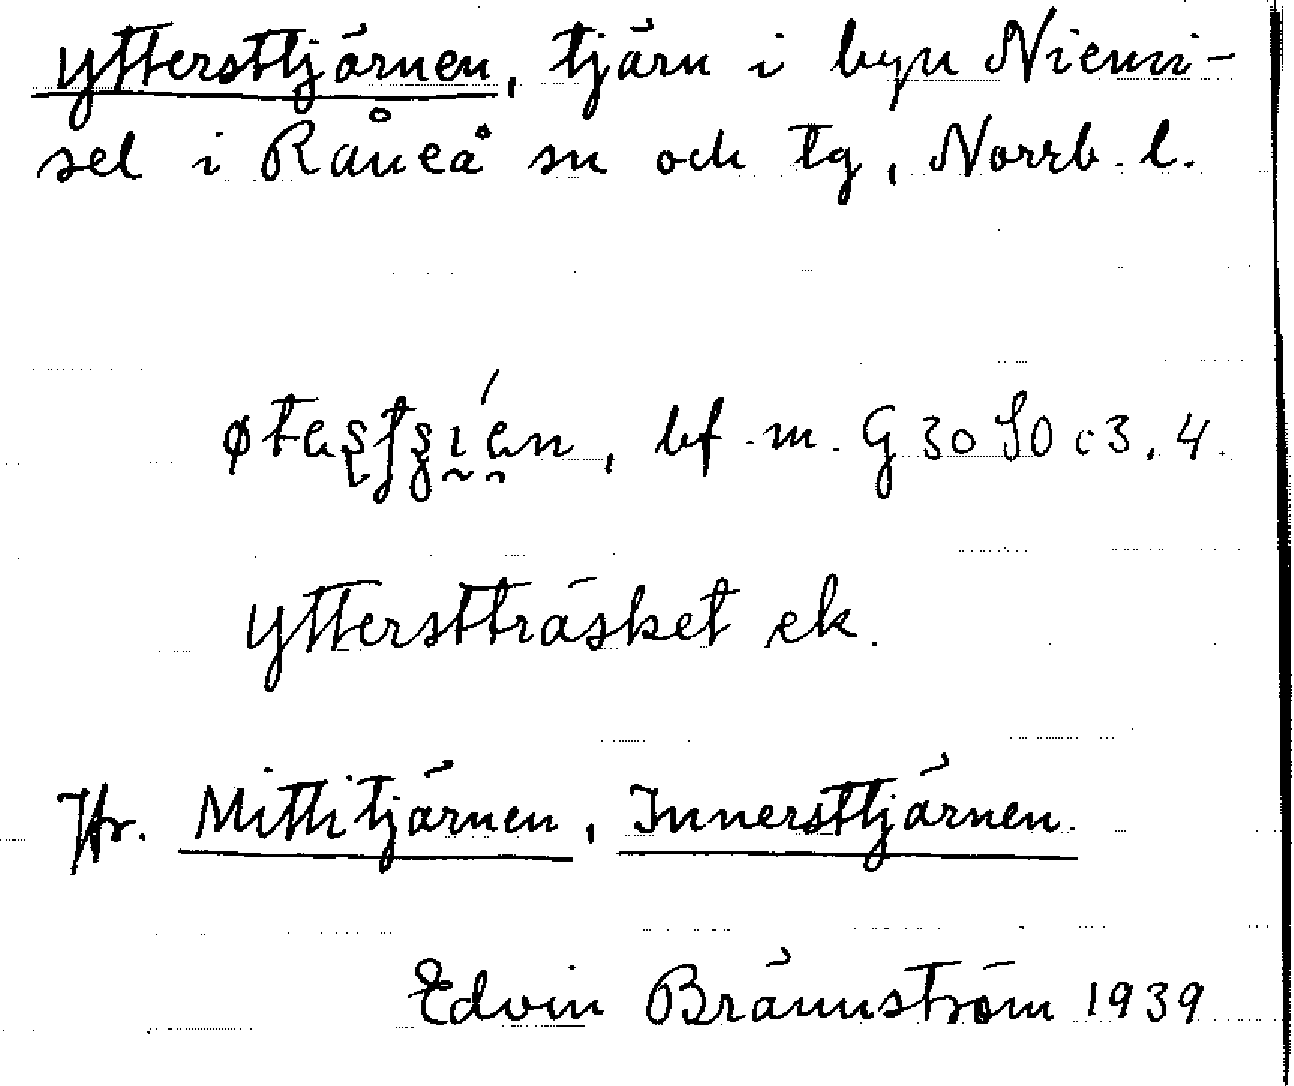 Yttersttjärnen, tjärn i byn Niemi-
sel i Råneå sn och tg, Norrb. l.
bf. m. G 30 SO c 3, 4.
Ytterstträsket ek.
Jfr. Mittitjärnen, Innersttjärnen.
Edvin Brännström 1939